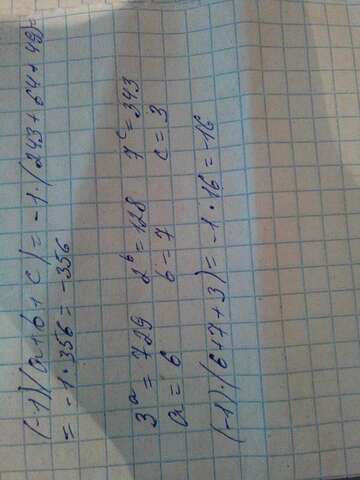 (-1)(a+b+c)= -1·(243+64+49)=
= -1·356= -356
3ᵃ = 729   2ᵇ=128   7ᶜ=343
a = 6   b=7   c=3
(-1)·(6+7+3)= -1·16= -16